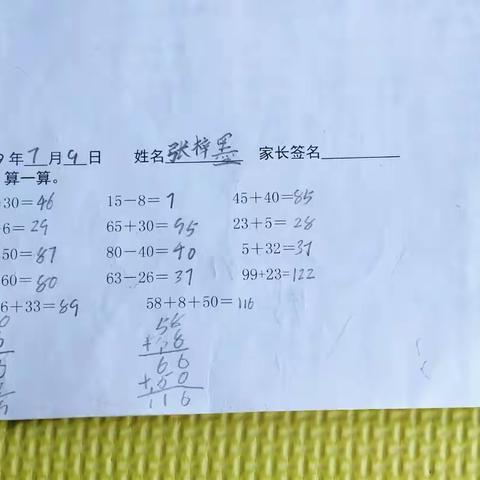 9年7月9日 姓名张梓墨 家长签名
算一算。
+30=46 15-8=7 45+40=85
6=29 65+30=95 23+5=28
50=87 80-40=40 5+32=37
60=80 63-26=37 99+23=122
6+33=89 58+8+50=116
58
+ 8
66
+50
116